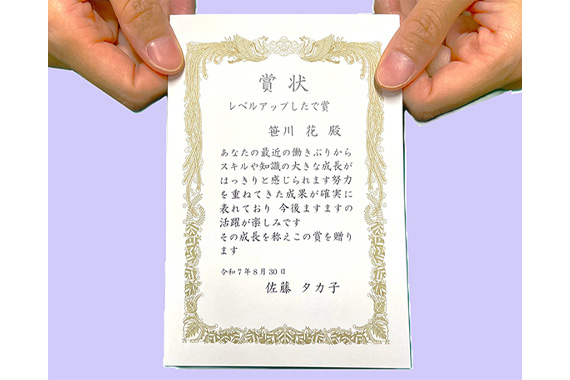 賞状
レベルアップしたで賞
笹川 花 殿
あなたの最近の働きぶりから
スキルや知識の大きな成長が
はっきりと感じられます努力
を重ねてきた成果が確実に
表れており 今後ますますの
活躍が楽しみです
その成長を称えこの賞を贈り
ます
令和7年8月30日
佐藤 タカ子